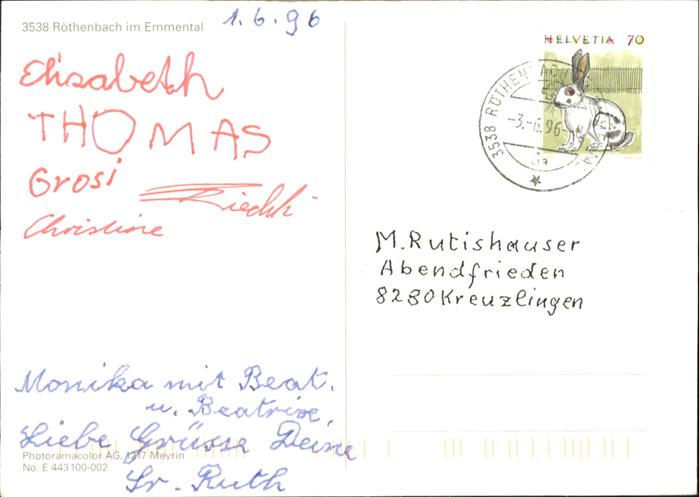 3538 Röthenbach im Emmental
1.6.96
Elisabeth
THOMAS
Grosi
Christine
Monika mit Beat.
u. Beatrice,
Liebe Grüsse Deine
Sr. Ruth
Photoramacolor AG, 1217 Meyrin
No. E 443 100-002
HELVETIA 70
3538 RÖTHENBACH
-3.-6.96
M. Rutishauser
Abendfrieden
8280 Kreuzlingen